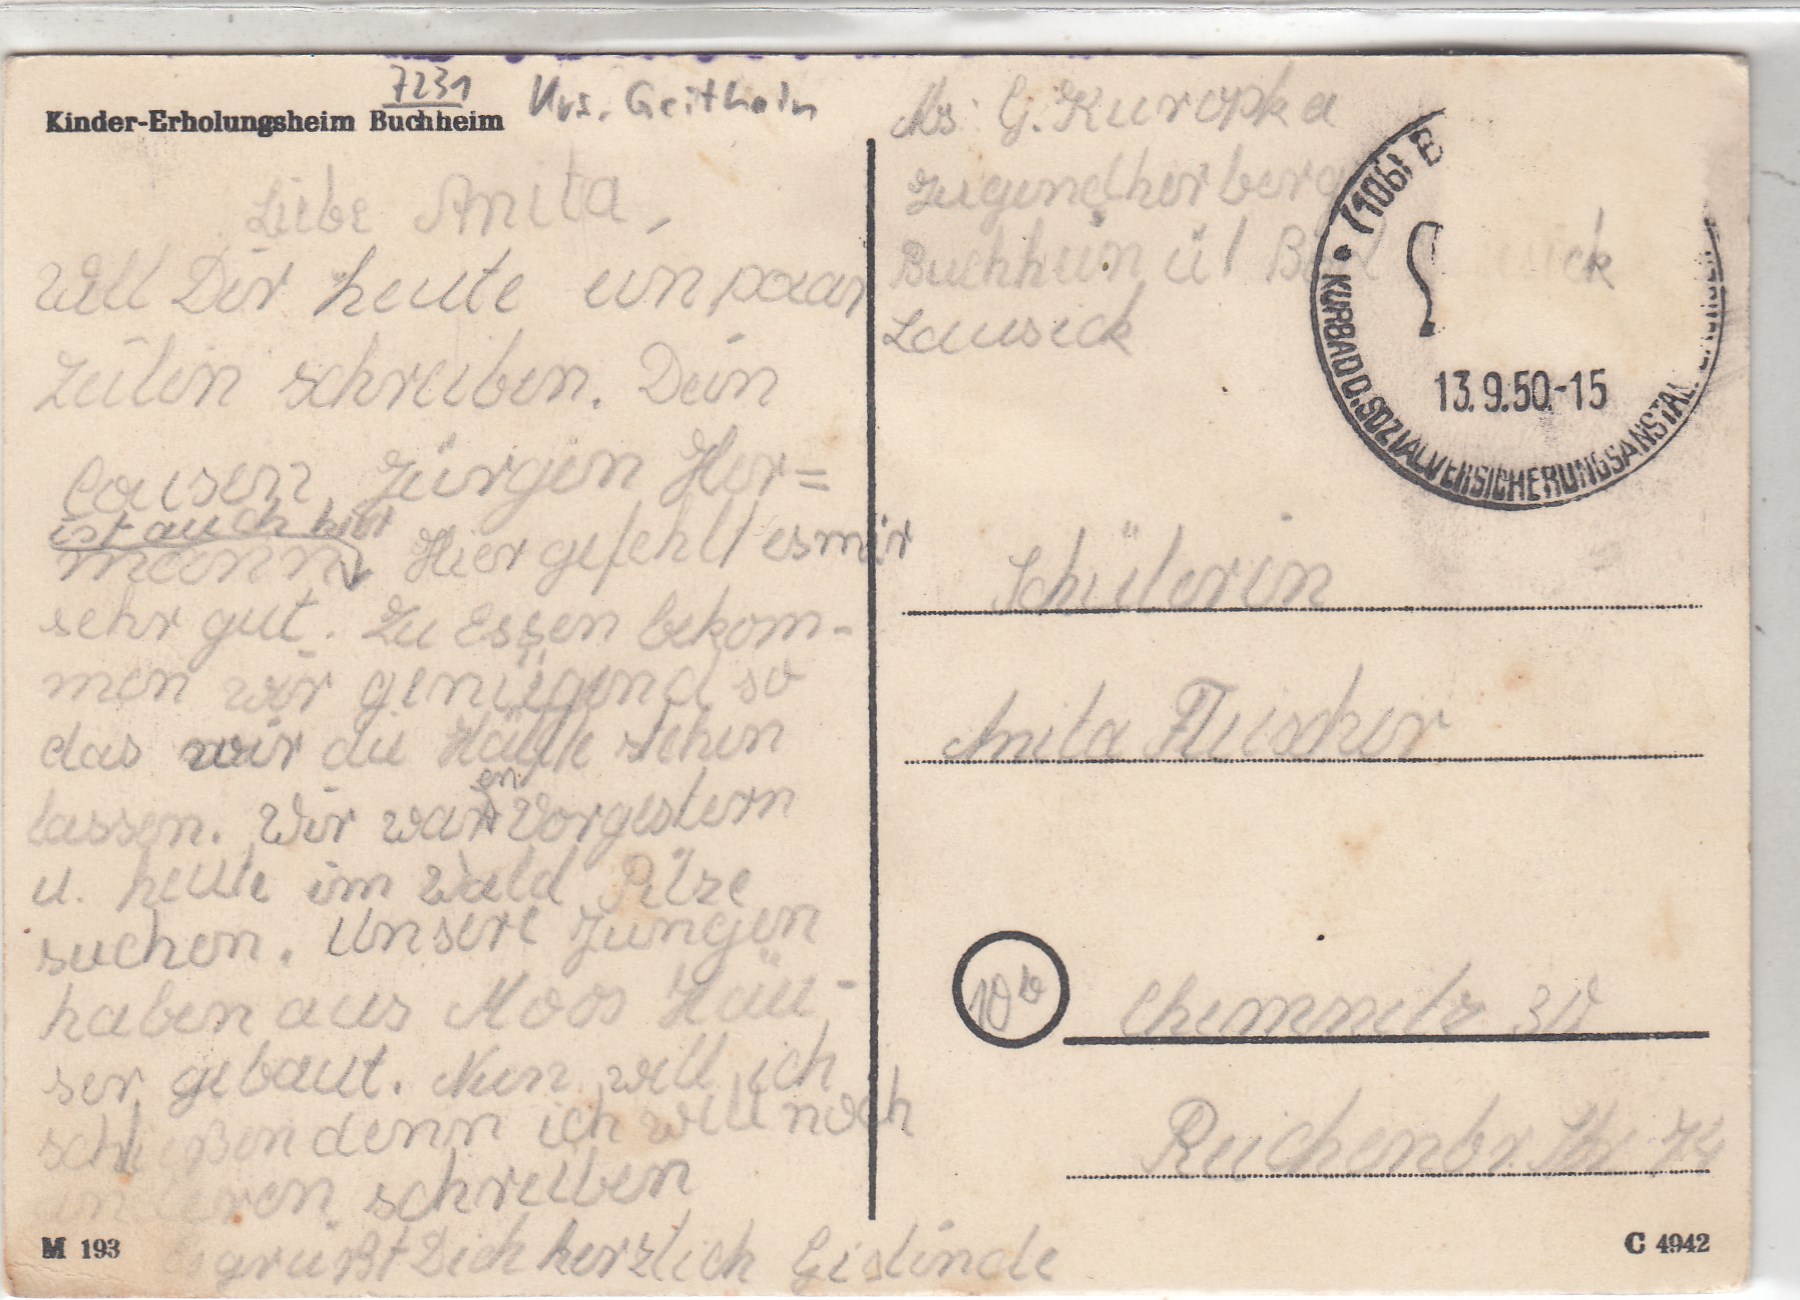 7231
Krs. Geithain
Kinder-Erholungsheim Buchheim
Liebe Anita,
Will Dir heute ein paar
Zeilen schreiben. Dein
Cousen, Jürgen Her=
ist auch hier
mann. Hier gefehlt es mir
sehr gut. Zu Essen bekom-
men wir genügend so
das wir die Hälfte stehen
lassen. Wir waren Vorgestern
u. heute im Wald Pilze
suchen. Unsere Jungen
haben aus Moos Häu-
ser gebaut. Nun will ich
schließen denn ich will noch
anderen schreiben
Es grüßt Dich herzlich Gislinde
M 193
Abs: G. Kuropka
Jugendherberg
Buchheim ü/ Bad
Lausick
(10b) B
KURBAD D. SOZIALVERSICHERUNGSANSTAL
13.9.50.-15
Schülerin
Anita Fleischer
10b
Chemnitz 30
Reichenbr. Str. 74
C 4942